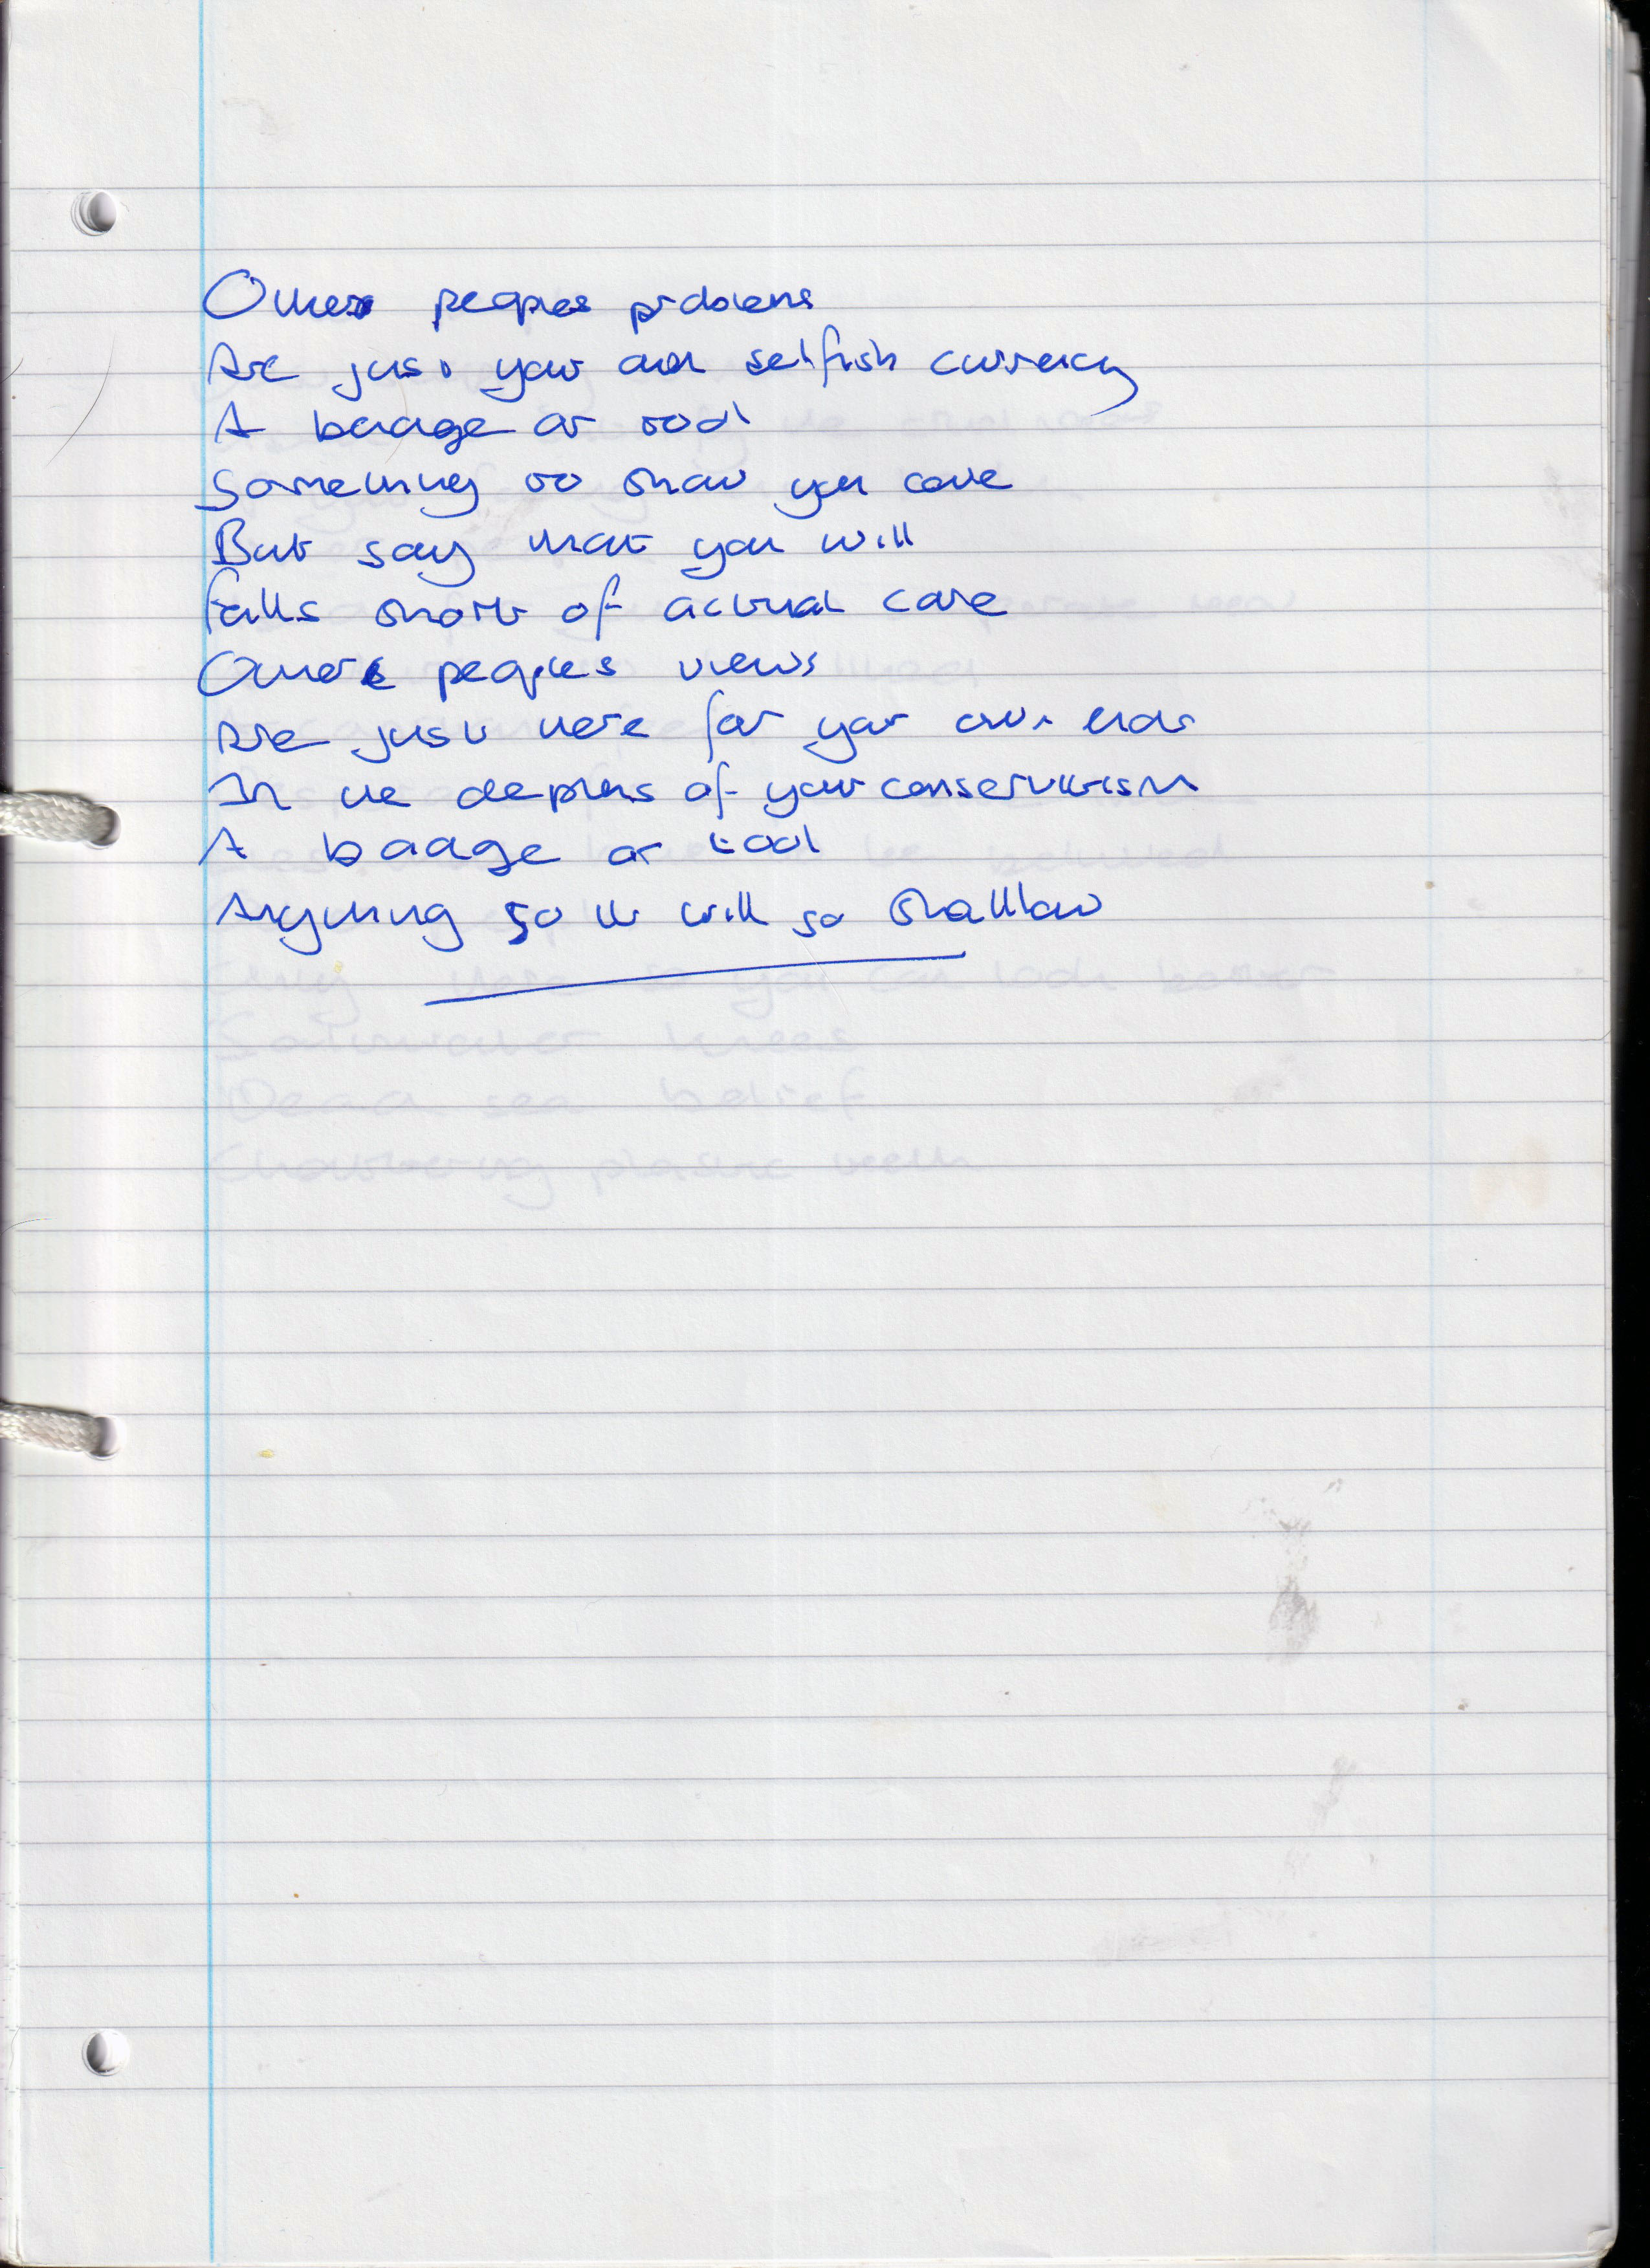 Other peoples problems
Are just your own selfish currency
A badge or tool
Something to show you care
But say what you will
falls short of actual care
Other peoples views
Are just here for your own ends
In the depths of your conservatism
A badge or tool
Anything so it will so shalllow